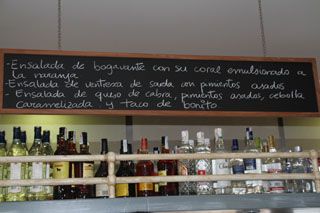 -Ensalada de bogavante con su coral emulsionado a
la naranja
-Ensalada de ventresca de sarda con pimientos asados
- Ensalada de queso de cabra, pimientos asados, cebolla
caramelizada y taco de bonito